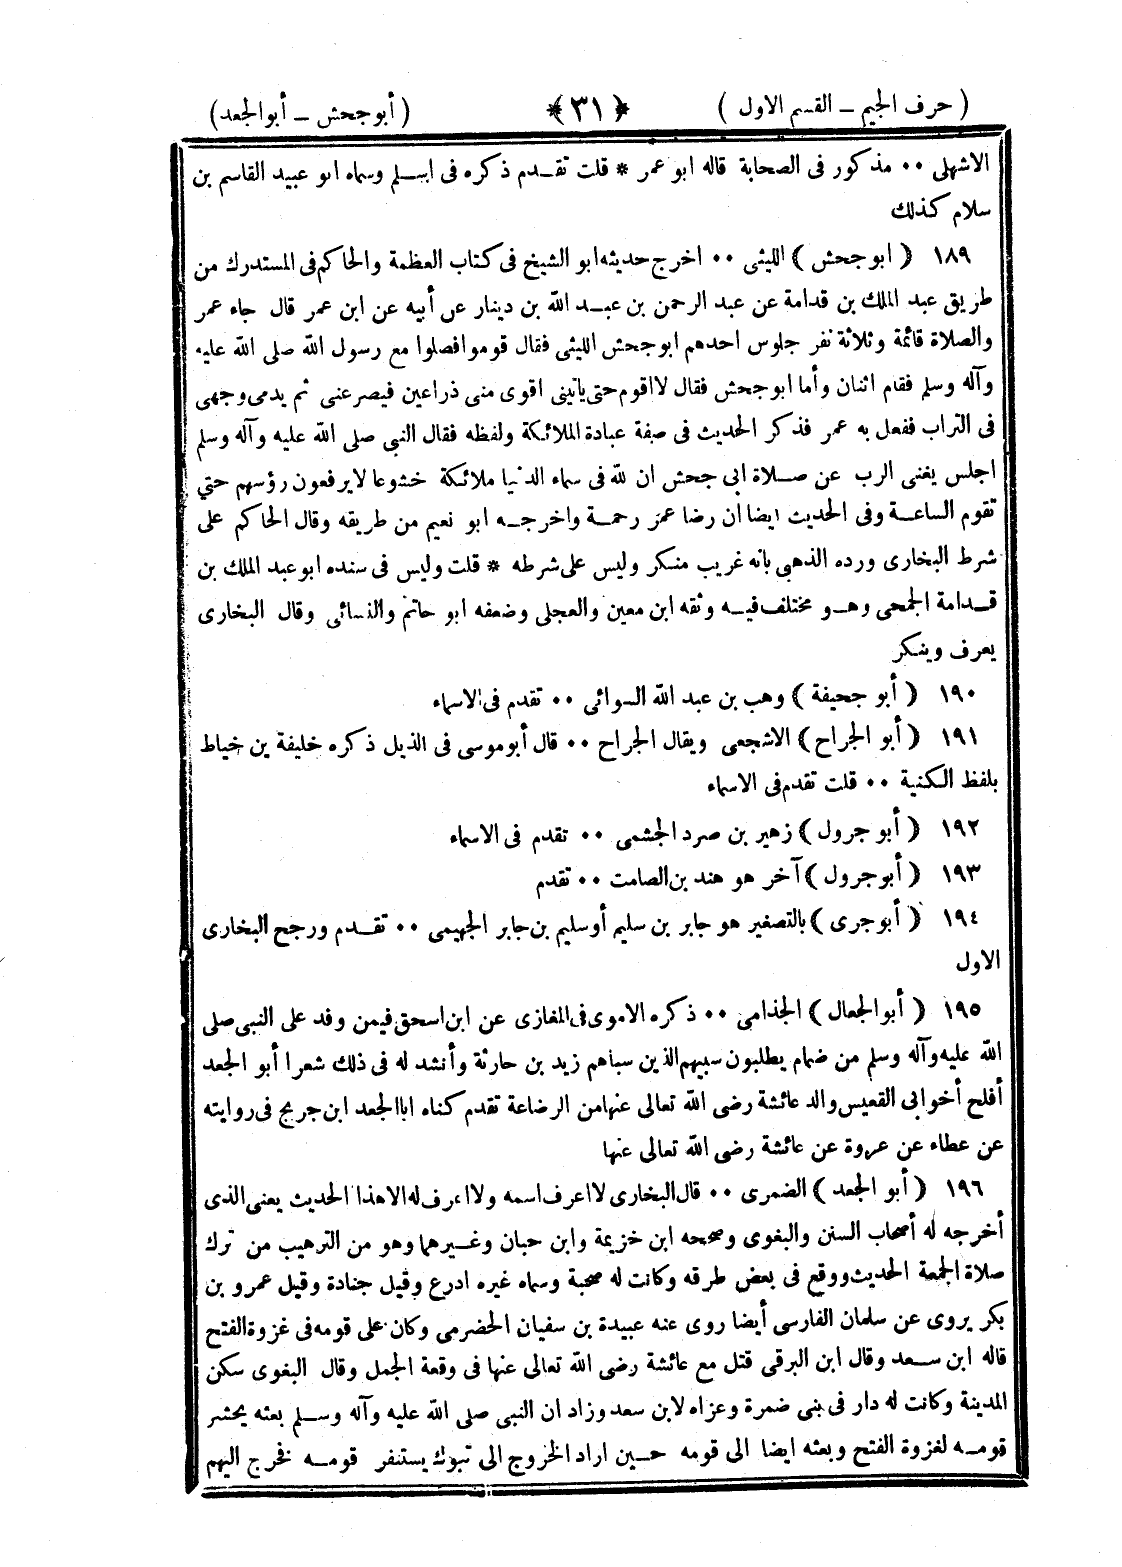 ( حرف الجيم – القسم الاول ) ﴿ ٣١ ﴾ ( أبو جحش – أبو الجعد )
الاشهلى ٠٠ مذكور فى الصحابة قاله ابو عمر * قلت تقدم ذكره فى اسلم وسماه ابو عبيد القاسم بن
سلام كذلك
١٨٩ ( ابو جحش ) الليثى ٠٠ اخرج حديثه ابو الشيخ فى كتاب العظمة والحاكم فى المستدرك من
طريق عبد الملك بن قدامة عن عبد الرحمن بن عبد الله بن دينار عن أبيه عن ابن عمر قال جاء عمر
والصلاة قائمة وثلاثة نفر جلوس احدهم ابو جحش الليثى فقال قوموا فصلوا مع رسول الله صلى الله عليه
وآله وسلم فقام اثنان وأما ابو جحش فقال لا اقوم حتى ياتينى اقوى منى ذراعين فيصرعنى ثم يدمى وجهى
فى التراب ففعل به عمر فذكر الحديث فى صفة عبادة الملائكة ولفظه فقال النبى صلى الله عليه وآله وسلم
اجلس يغنى الرب عن صلاة ابى جحش ان لله فى سماء الدنيا ملائكة خشوعا لا يرفعون رؤسهم حتي
تقوم الساعة وفى الحديث ايضا ان رضا عمر رحمة واخرجه ابو نعيم من طريقه وقال الحاكم على
شرط البخارى ورده الذهبى بانه غريب منكر وليس على شرطه * قلت وليس فى سنده ابو عبد الملك بن
قدامة الجمحى وهو مختلف فيه وثقه ابن معين والعجلى وضعفه ابو حاتم والنسائى وقال البخارى
يعرف وينكر
١٩٠ ( أبو جحيفة ) وهب بن عبد الله السوائى ٠٠ تقدم فى الاسماء
١٩١ ( أبو الجراح ) الاشجعى ويقال الجراح ٠٠ قال أبو موسى فى الذيل ذكره خليفة بن خياط
بلفظ الكنية ٠٠ قلت تقدم فى الاسماء
١٩٢ ( أبو جرول ) زهير بن صرد الجشمى ٠٠ تقدم فى الاسماء
١٩٣ ( أبو جرول ) آخر هو هند بن الصامت ٠٠ تقدم
١٩٤ ( أبو جرى ) بالتصغير هو جابر بن سليم أو سليم بن جابر الجهيمى ٠٠ تقدم ورجح البخارى
الاول
١٩٥ ( أبو الجعال ) الجذامى ٠٠ ذكره الاموى فى المغازى عن ابن اسحق فيمن وفد على النبى صلى
الله عليه وآله وسلم من ضمام يطلبون سبيهم الذين سباهم زيد بن حارثة وأنشد له فى ذلك شعرا أبو الجعد
أفلح أخو ابى القعيس والد عائشة رضى الله تعالى عنها من الرضاعة تقدم كناه ابا الجعد ابن جريج فى روايته
عن عطاء عن عروة عن عائشة رضى الله تعالى عنها
١٩٦ ( أبو الجعد ) الضمرى ٠٠ قال البخارى لا اعرف اسمه ولا اعرف له الا هذا الحديث يعنى الذى
أخرجه له أصحاب السنن والبغوى وصححه ابن خزيمة وابن حبان وغيرهما وهو من الترهيب من ترك
صلاة الجمعة الحديث ووقع فى بعض طرقه وكانت له صحبة وسماه غيره ادرع وقيل جنادة وقيل عمرو بن
بكر يروى عن سلمان الفارسى أيضا روى عنه عبيدة بن سفيان الحضرمى وكان على قومه فى غزوة الفتح
قاله ابن سعد وقال ابن البرقى قتل مع عائشة رضى الله تعالى عنها فى وقعة الجمل وقال البغوى سكن
المدينة وكانت له دار فى بنى ضمرة وعزاه لابن سعد وزاد ان النبى صلى الله عليه وآله وسلم بعثه يحشر
قومه لغزوة الفتح وبعثه ايضا الى قومه حين اراد الخروج الى تبوك يستنفر قومه فخرج اليهم